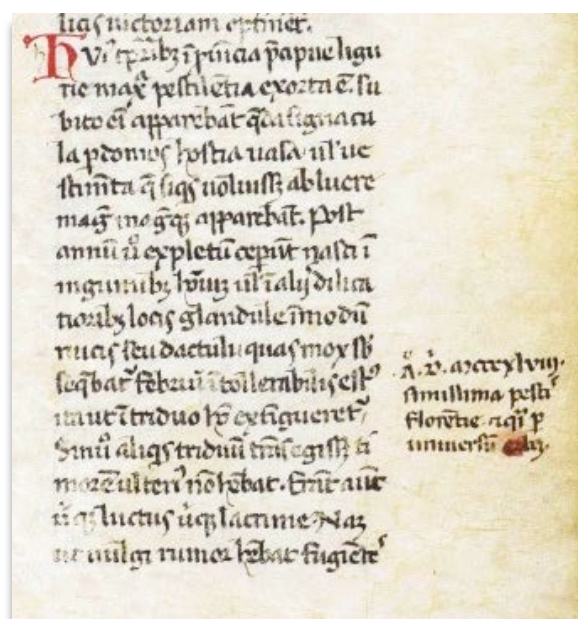 licis victoriam optinet.
Hui᷒ tp̄ribꝫ ī p̱uincia p̄cipue ligu
rie maxͥ pestilētia exorta ē. su
bito eī apparebāt q̄dā signacu
la ꝑ domos hostia uasa ul̄ ue
stim̄ta q̄ siqs uoluissꝫ abluere
maḡ magꝫ apparebāt. Post
annū ū expletū ceper̄t nasci ī
inguinibꝫ hōīuꝫ ul̄ ī alijs dilica
tioribꝫ locis glandule ī modū
nucis seu dactuli quas mox sb
seq̄bat᷑ febriū ītollerabilis est᷒
ita ut ī triduo hō extingueret᷑
Sin ū aliqs triduū trāsegissꝫ ti
morē ulteri᷒ nō hēbat. Erāt aut̄
ūqꝫ luctus ūqꝫ lacrime. Naꝫ
ut uulgi rumor hēbat fugiēte᷒
A. D̄. mcccxlviij.
simillima pesti᷒
florentie ⁊ qͥ ꝑ
uniuersū